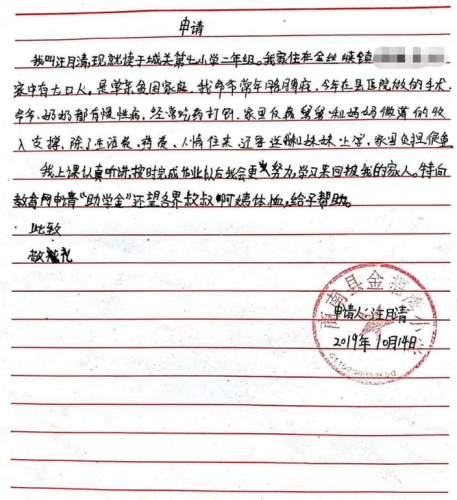 申请
我叫汪月清,现就读于城关第七小学二年级。我家住在金丝峡镇
家中有七口人,是学京贫困家庭,我爷爷常年胳膊疼,今年在县医院做的手术,
爷爷、奶奶都有慢性病,经常吃药打针,家里仅靠爸爸和妈妈微薄的收
入支撑,除了生活费、药费、人情往来,还要送我和妹妹上学,家里负担很重
我上课认真听讲,按时完成作业以后我会更努力学习来回报我的家人。特向
教育网申请“助学金”还望各界叔叔啊姨体恤,给予帮助。
此致
敬礼
申请人:汪月清
2019年10月14日
商南县金 小